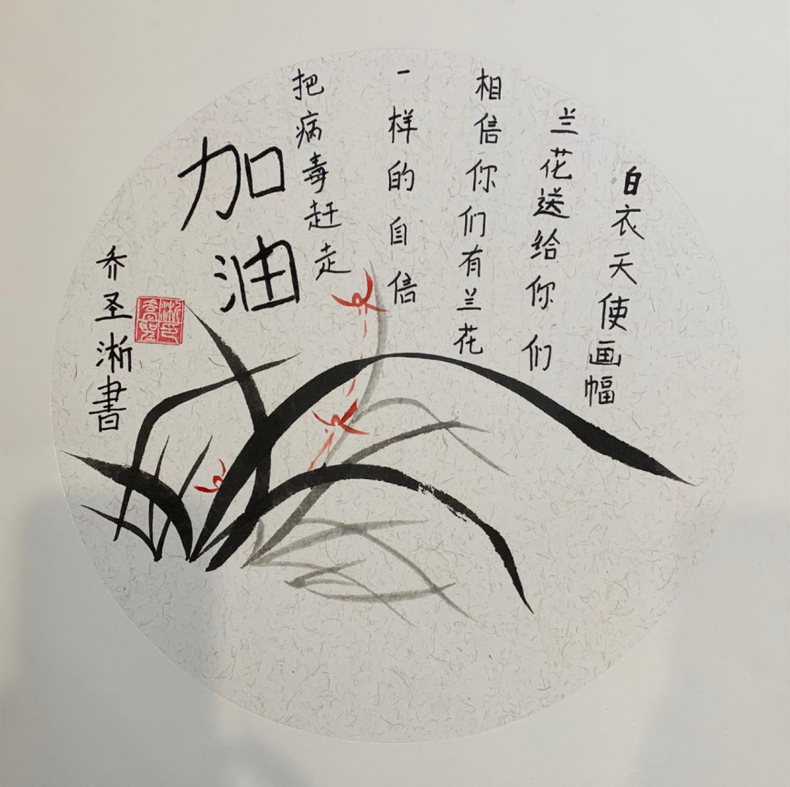 白衣天使画幅
兰花送给你们
相信你们有兰花
一样的自信
把病毒赶走
加油
乔圣淅書